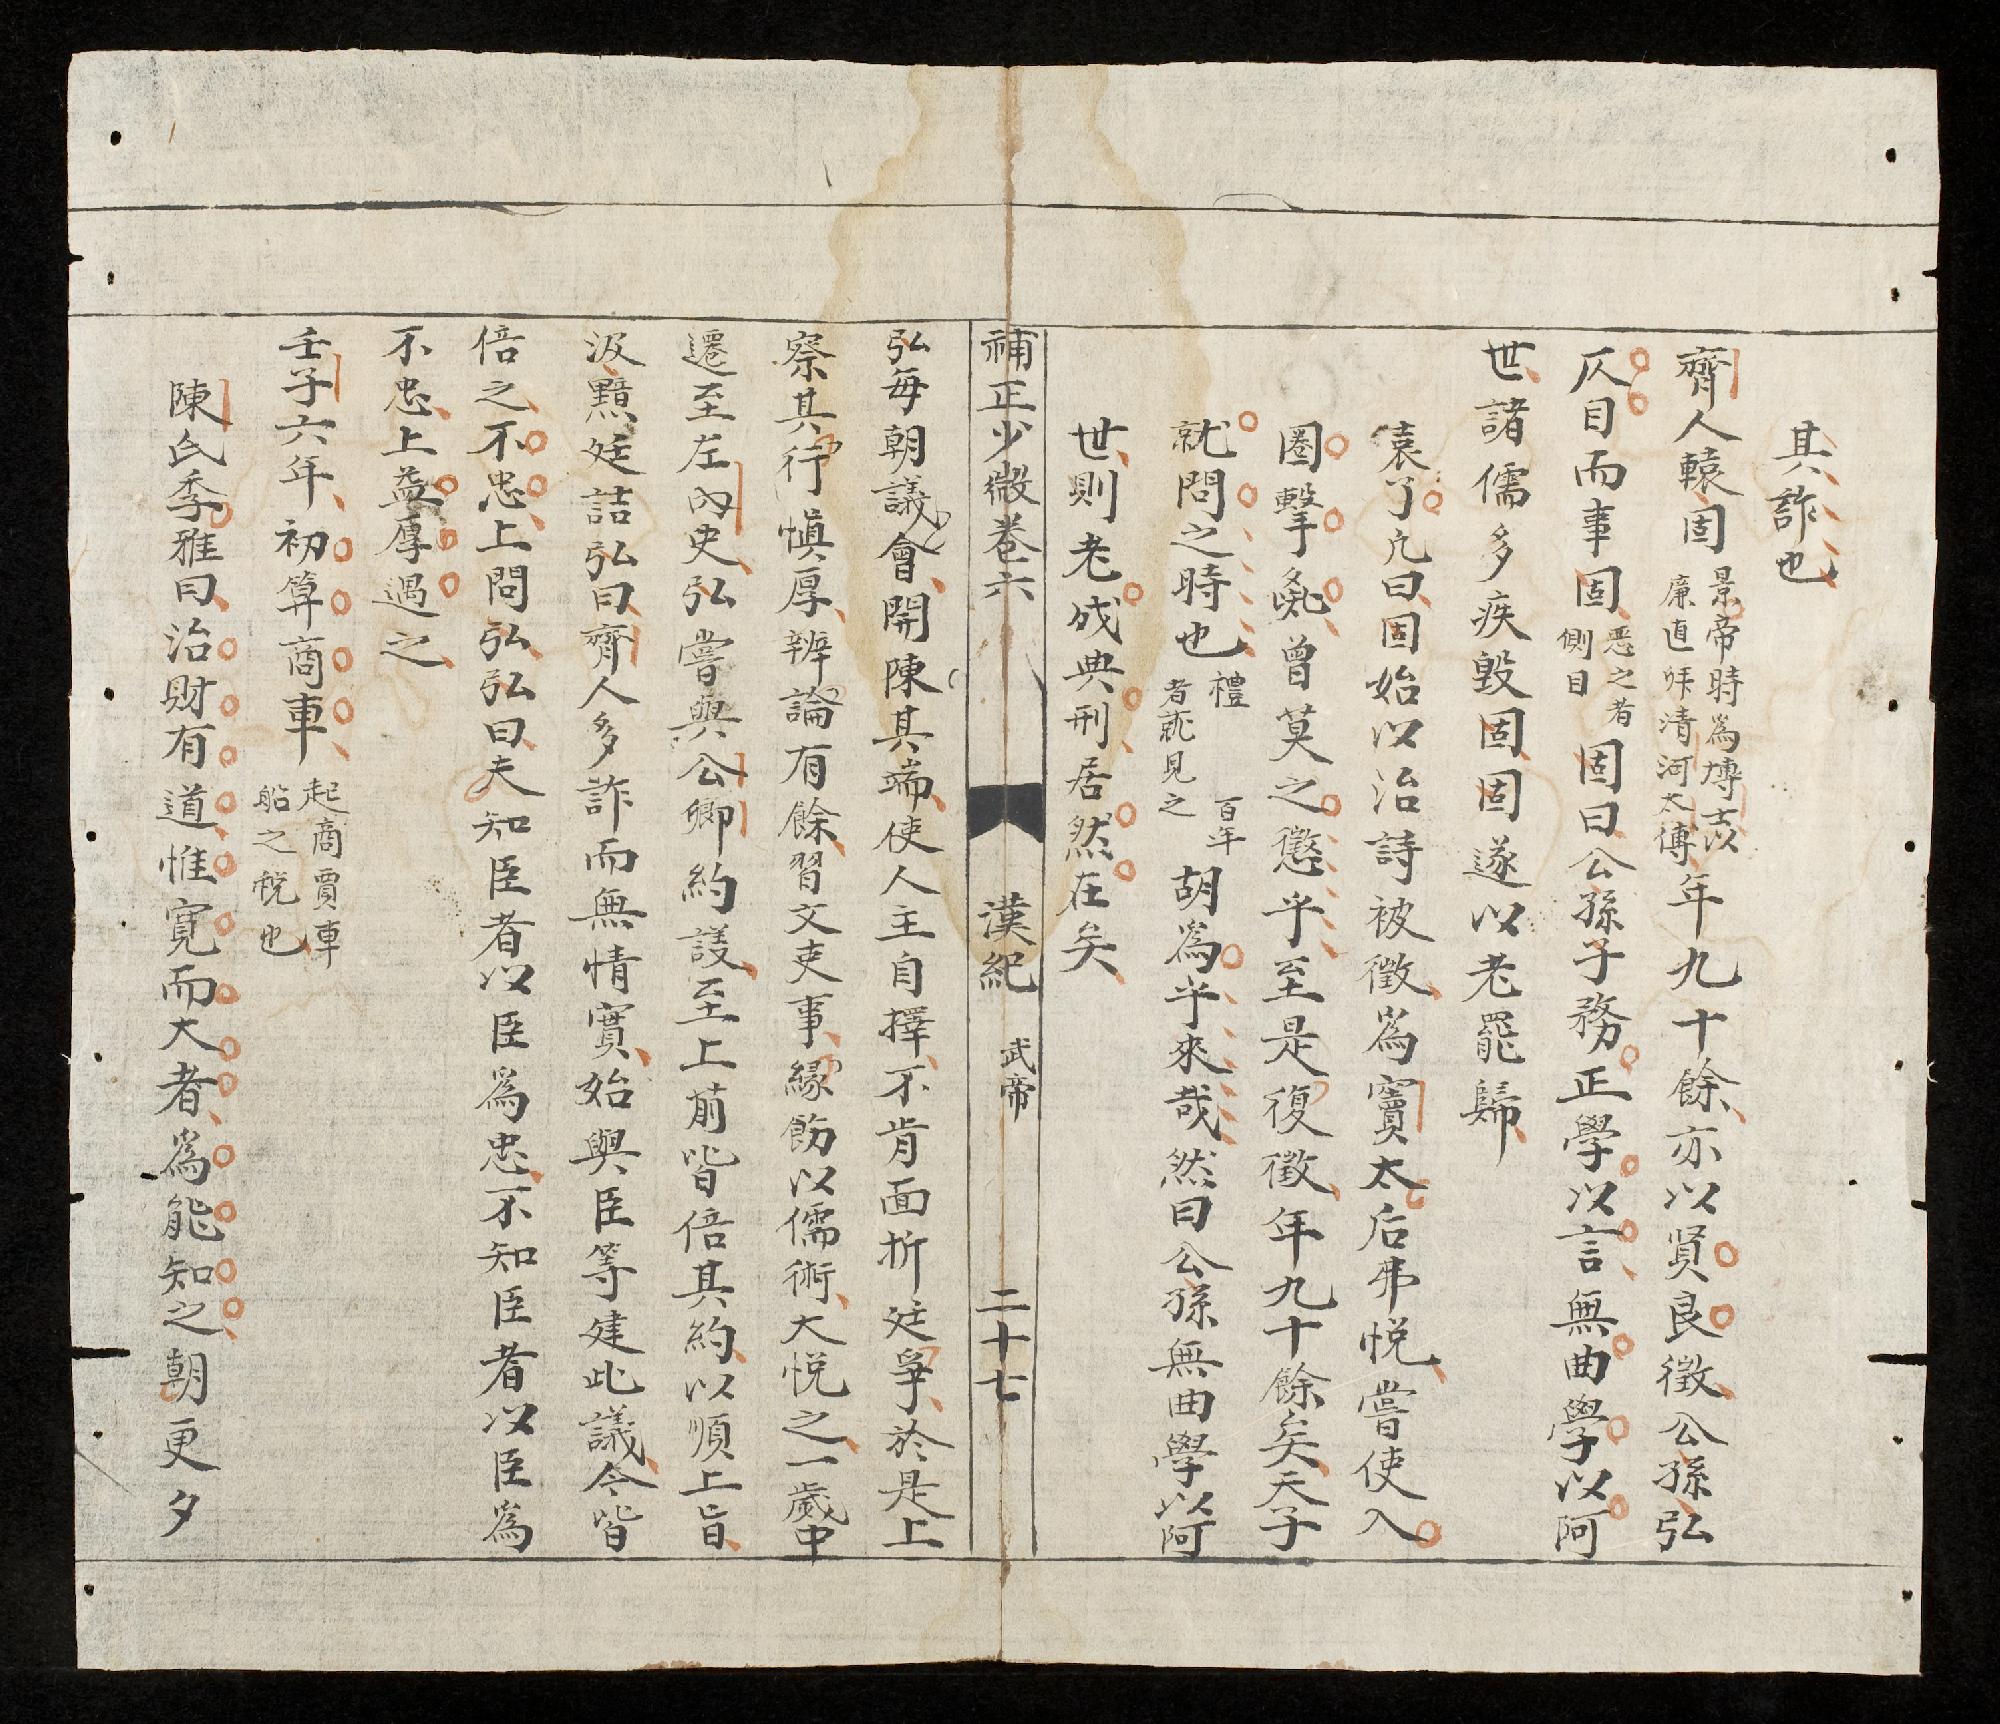 其詐也
齊人轅固
景帝時為博士以
廉直拜清河太傅
年九十餘亦以賢良徵公孫弘
仄目而事固
惡之者
側目
固曰公孫子務正學以言無曲學以阿
世諸儒多疾毀固固遂以老罷歸
袁了凡曰固始以治詩被徵為竇太后弗悅嘗使入
圈擊彘曾莫之懲乎至是復徵年九十餘矣天子
就問之時也
禮 百年
者就見之
胡為乎來哉然曰公孫無曲學以阿
世則老成典刑居然在矣
補正少微卷六 漢紀 武帝 二十七
弘每朝議會開陳其端使人主自擇不肯面折廷爭於是上
察其行慎厚辨論有餘習文吏事緣飭以儒術大悅之一歲中
遷至左內史弘嘗與公卿約議至上前皆倍其約以順上旨
汲黯廷詰弘曰齊人多詐而無情實始與臣等建此議今皆
倍之不忠上問弘弘曰夫知臣者以臣為忠不知臣者以臣為
不忠上益厚遇之
壬子六年初算商車
起商賈車
船之稅也
陳氏季雅曰治財有道惟寬而大者為能知之朝更夕